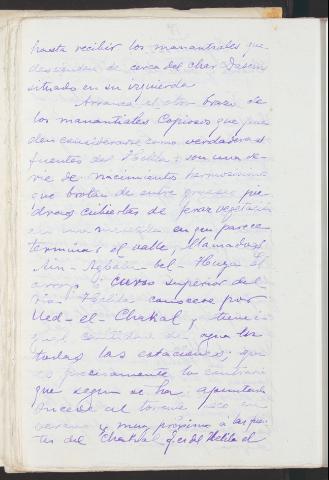 hasta recibir los manantiales que
descienden de cerca del Char Dascin
situado en su izquierda
Arranca el otro brazo de
los manantiales copiosos que pue
den considerarse como verdaderas
fuentes del Helila; son una se-
rie de nacimientos hermosisimos
que brotan de entre gruesas pie
dras cubiertas de feraz vegetación
en una meseta en que parece
terminar el valle, llamados
Ain - bel - El
arroyo ó curso superior del
rio Helila conocese por
Ued-el-Chakal, y tiene
igual cantidad de agua en
todas las estaciones; que
es precisamente lo contrario
que segun se ha apuntado
sucede al
verano y muy próximo á las fuen
tes del Chakal ques del Helila el